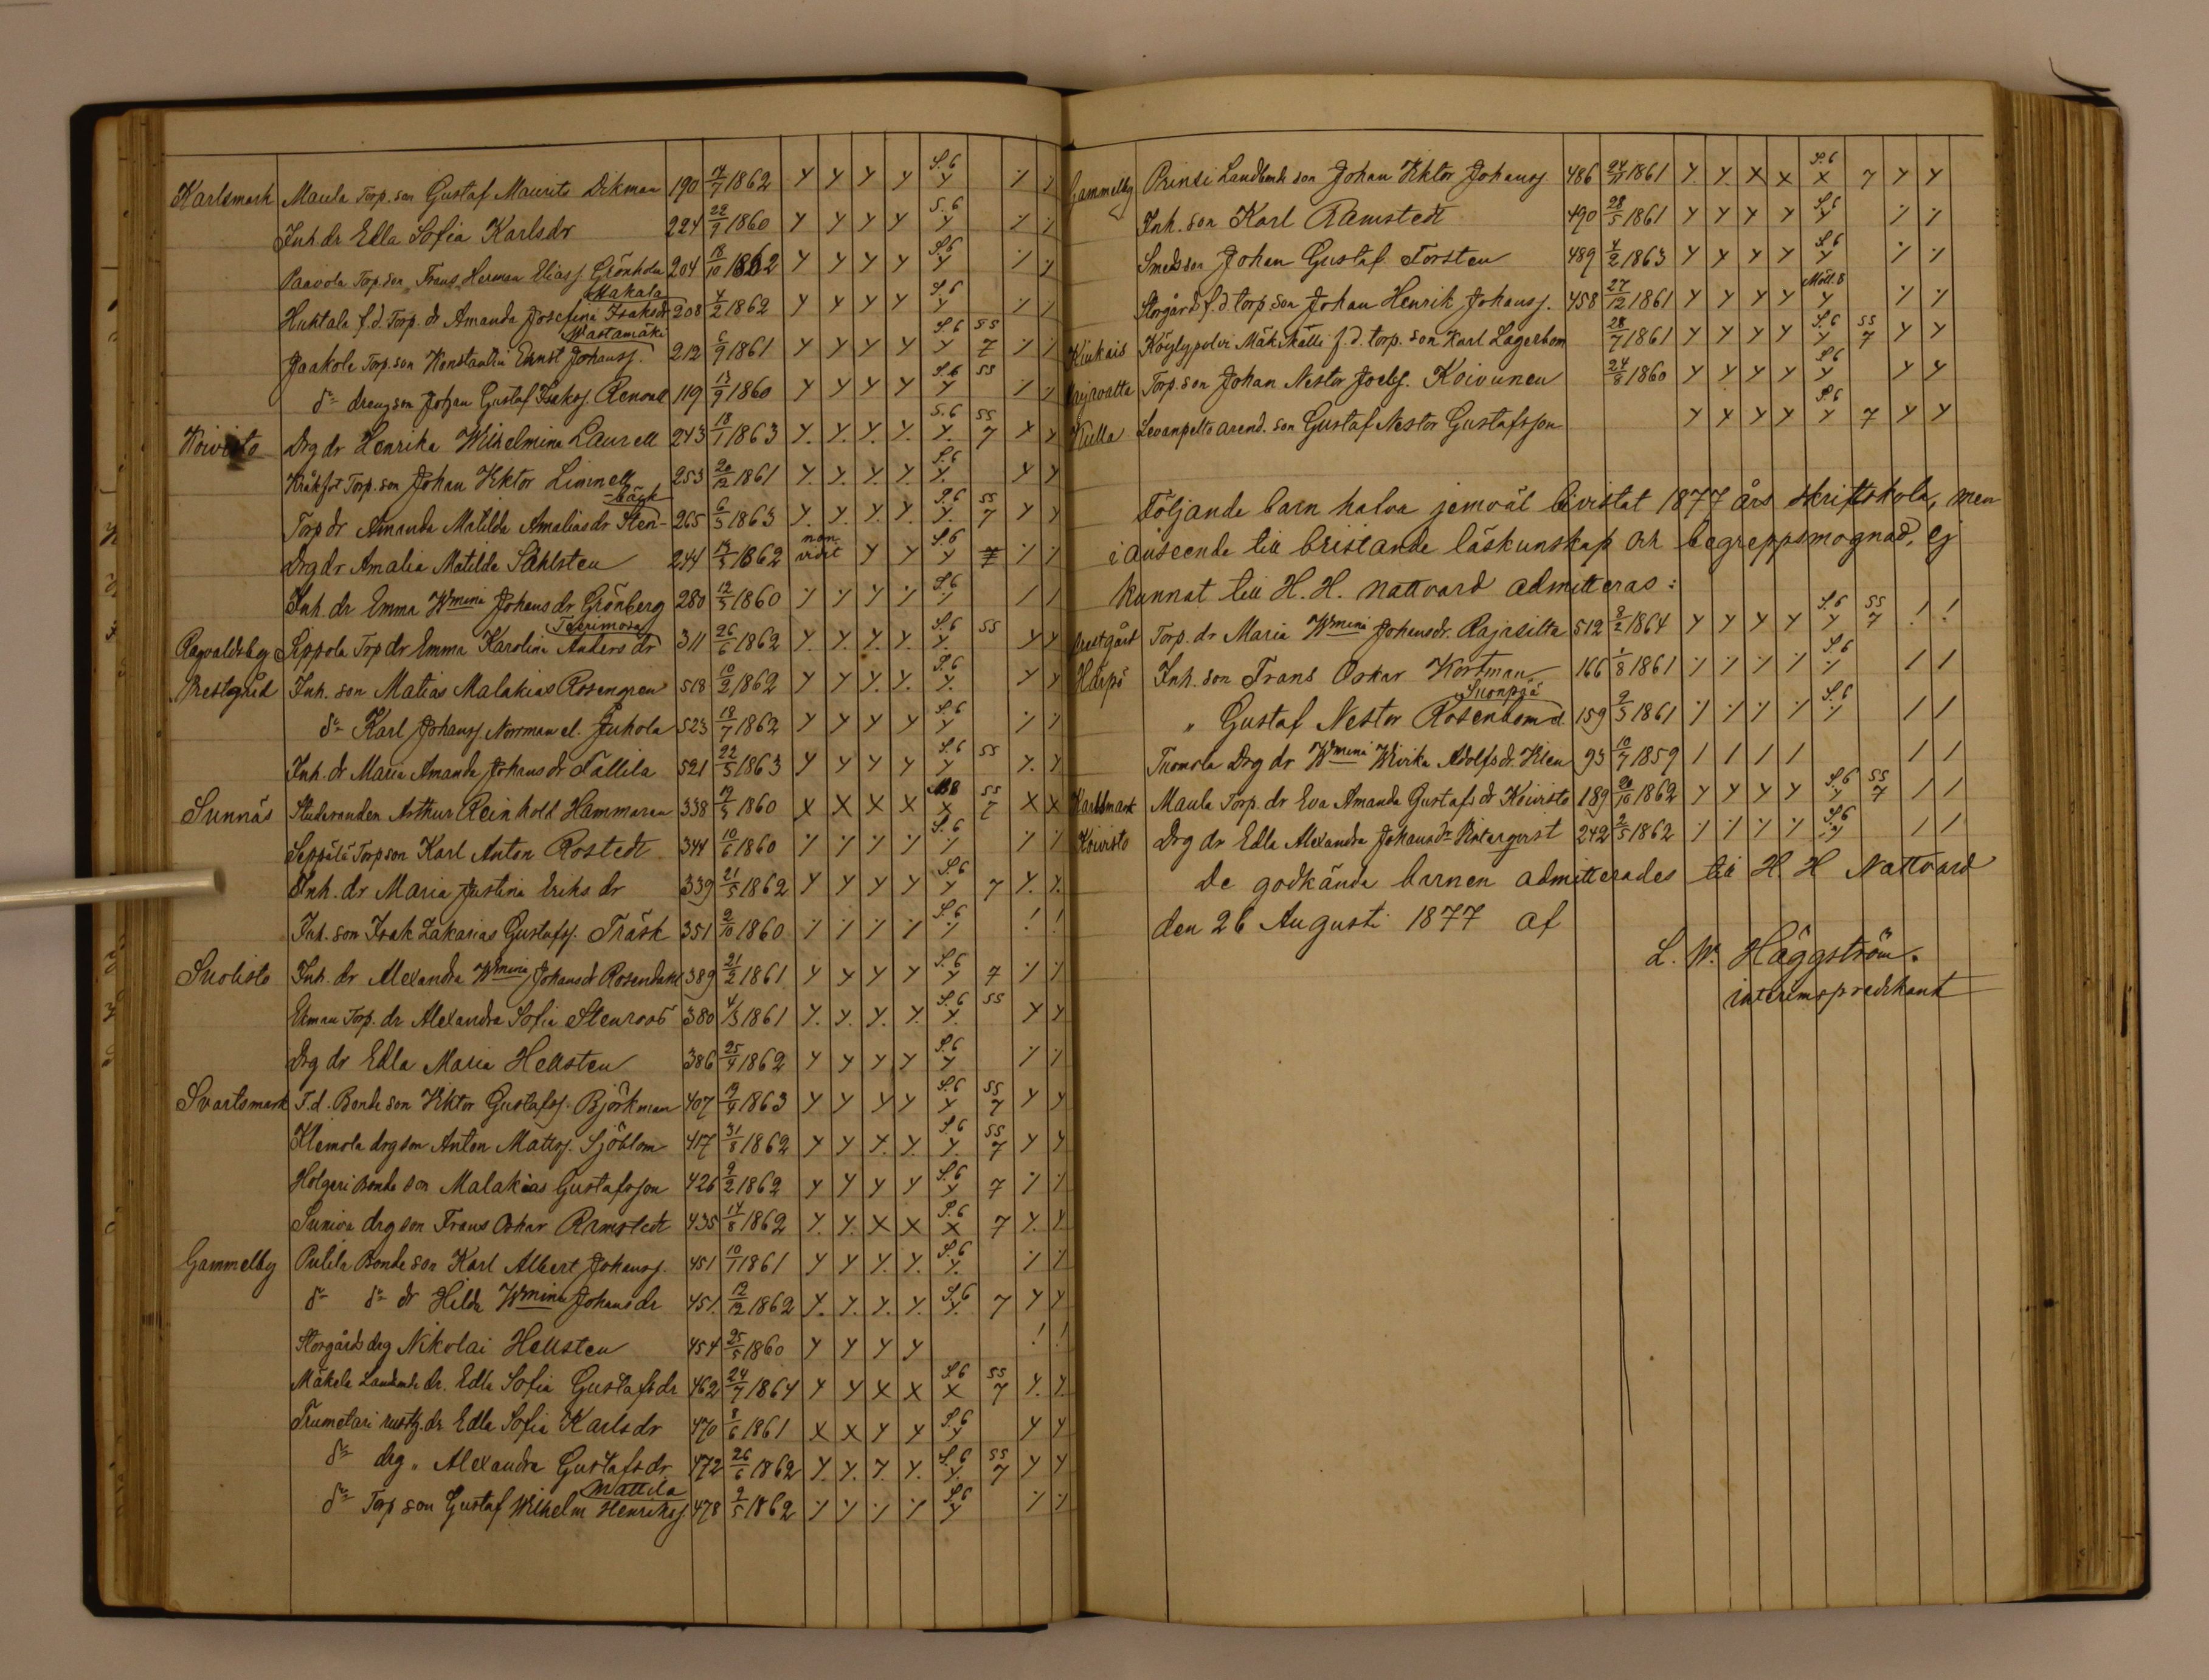 Karlsmark Maula Torp. son Gustaf Maurits Ekman 190 1862 Y Y Y Y S.6 Y
Inh. dr Edla Sofia Karlsdr 224 22/9 1860 Y Y Y Y S.6 Y
Paavola Torp. son Frans Herman Eliass. Grönholm 204 18/10 1862 Y Y Y Y S.6 Y
Makala
Huhtala f.d. Torp. dr Amanda Josefina Isaksdr 208 4/2 1862 Y Y Y Y S.6 Y
Wastamäki
Jaakola Torp. son Konstantin Ernst Johanss. 212 6/9 1861 Y Y Y Y S.6 Y SS 7
do drengson Johan Gustaf Isakss. Renvall 119 13/9 1860 Y Y Y Y S.6 Y SS
Koivisto Drg dr Henrika Wilhelmina Laurell 243 18/1 1863 Y. Y. Y. Y. S.6 Y. SS 7 Y Y
Torp. son Johan Viktor Linnell 253 20/12 1861 Y. Y. Y. Y. S.6 Y. Y Y
-bäck
Torp dr Amanda Matilda Amaliasdr Sten- 265 6/3 1863 Y. Y. Y. Y. S.6 Y. SS 7 Y Y
Drg dr Amalia Matilda Sahlsten 244 1862 non vidit Y Y S.6 Y 7
Inh. dr Emma Wmina Johansdr Grönberg 280 12/5 1860 S.6
Ragvaldsby Seppola Trp dr Emma Karolina Andersdr 311 26/6 1862 Y. Y. Y. Y. S.6 Y. SS Y Y
Prestgård Inh. son Matias Malakias Rosengren 518 10/2 1862 Y Y Y. Y. S.6 Y. Y Y
do Karl Johanss. Norrman el. Juhola 523 18/7 1862 Y Y Y Y S.6 Y
Inh. dr Maria Amanda Johansdr Tallila 521 22/5 1863 Y Y Y Y S.6 Y SS Y. Y.
Sunnäs Studeranden Arthur Reinhold Hammarén 338 1860 X X X X X SS 7 X X
Seppälä Torpson Karl Anton Rostedt 344 10/6 1860 S.6
Inh. dr Maria Justina Eriksdr 339 21/5 1862 Y Y Y Y S.6 Y 7 Y. Y.
Inh. son Isak Zakarias Gustafss. Träsk 351 9/10 1860 S.6 ! !
Suolisto Inh. dr Alexandra Wmina Johansdr Rosendahl 389 21/2 1861 Y Y Y Y S.6 Y 7
Ekman Torp. dr Alexandra Sofia Stenroos 380 4/3 1861 Y. Y. Y. Y. S.6 Y. SS Y Y
Drg dr Edla Maria Hellsten 386 25/4 1862 Y Y Y Y S.6 Y
Svartsmark F.d. Bonde son Viktor Gustafss. Björkman 407 1863 Y Y Y Y S.6 Y SS 7 Y Y
Klemola drg son Anton Matss. Sjöblom 417 31/8 1862 Y Y Y. Y. S.6 Y. SS 7 Y Y
Holgeri Bonde son Malakias Gustafsson 426 9/2 1862 Y Y Y Y S.6 Y 7
Suniva drg son Frans Oskar Ramstedt 435 14/8 1862 Y. Y. X X S.6 X 7 Y. Y.
Gammelby Putila Bonde son Karl Albert Johanss. 451 1861 Y Y Y. Y. S.6 Y.
do do dr Hilda Wmina Johansdr 451. 12/12 1862 Y. Y. Y. Y. S.6 Y. 7 Y Y
Storgårds drg Nikolai Hellsten 454 25/5 1860 Y Y Y Y ! !
Mäkelä Landbonde dr. Edla Sofia Gustafsdr 462 24/7 1864 Y Y X X S.6 X SS 7 Y. Y.
Trumetari rusth. dr Edla Sofia Karlsdr 470 8/6 1861 X X Y Y S.6 Y Y Y
do drg " Alexandra Gustafsdr 472 26/6 1862 Y. Y. Y. Y. S.6 Y. SS 7 Y Y
Mattila
do Torp son Gustaf Wilhelm Henrikss. 478 9/5 1862 S.6 Y
Gammelby Prinsi Landbonde son Johan Viktor Johanss. 486 24/11 1861 Y. Y. X X S.6 X 7 Y Y
Inh. son Karl Ramstedt 490 28/5 1861 Y Y Y Y S.6 Y
Smeds son Johan Gustaf Torsten 489 4/2 1863 Y Y Y Y S.6 Y
Storgårds f.d. torp. son Johan Henrik Johanss. 458 27/12 1861 Y Y Y Y Y
Kiukais Köylypolvi f.d. torp. son Karl Lagerbom 28/7 1861 Y Y Y Y S.6 Y SS 7 Y Y
Torp. son Johan Nestor Joelss. Koivunen 24/8 1860 Y Y Y Y S.6 Y Y Y
Kulla Levanpelto arend. son Gustaf Nestor Gustafsson Y Y Y Y S.6 Y 7 Y Y
Följande barn hafva jemväl bivistat 1877 års skriftskola, men
i anseende till bristande läskunskap och begreppsmognad, ej
kunnat till H. H. nattvard admitteras:
Prestgård Torp. dr Maria Wmina Johansdr. Rajasilta 512 8/2 1864 Y Y Y Y S.6 Y SS 7 ! !
Harpö Inh. son Frans Oskar Kortman 166 1/8 1861 S.6
Suonpää
" Gustaf Nestor Rosenblom el. 159 9/3 1861 S.6
Tuomola Drg dr Wmina Wivika Adolfsdr. Klen 93 10/7 1859
Karlsmark Maula Torp. dr Eva Amanda Gustafsdr Koivisto 189 20/10 1862 Y Y Y Y S.6 Y SS 7
Koivisto Drg dr Edla Alexandra Johansdr Vintergvist 242 2/5 1862 S.6
De godkända barnen admitterades till H. H. Nattvard
den 26 Augusti 1877 af
L. W. Häggström.
interimspredikant